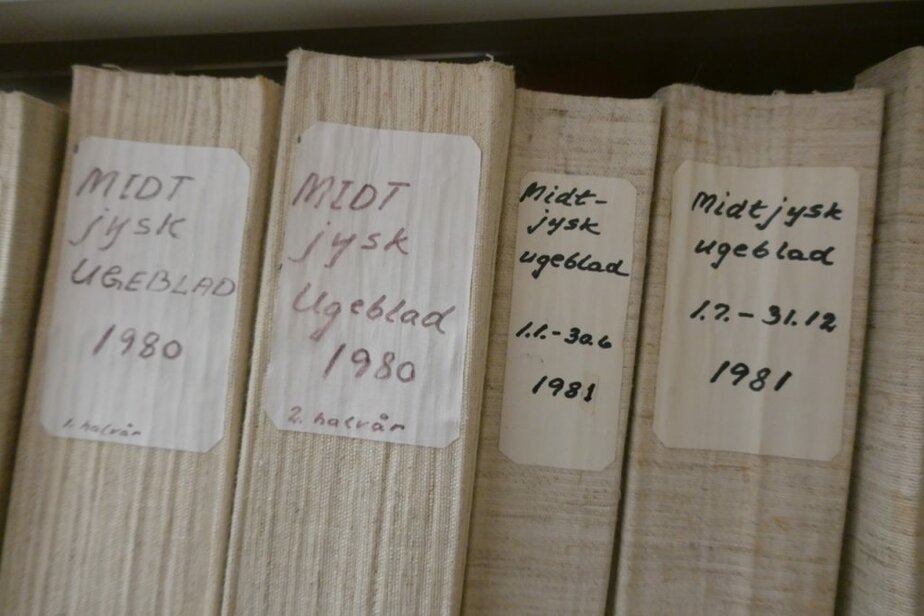 MIDT
jysk
UGEBLAD
1980
1. halvår
MIDT
jysk
Ugeblad
1980
2. halvår
Midt-
jysk
ugeblad
1.1.-30.6
1981
Midtjysk
ugeblad
1.7.-31.12
1981